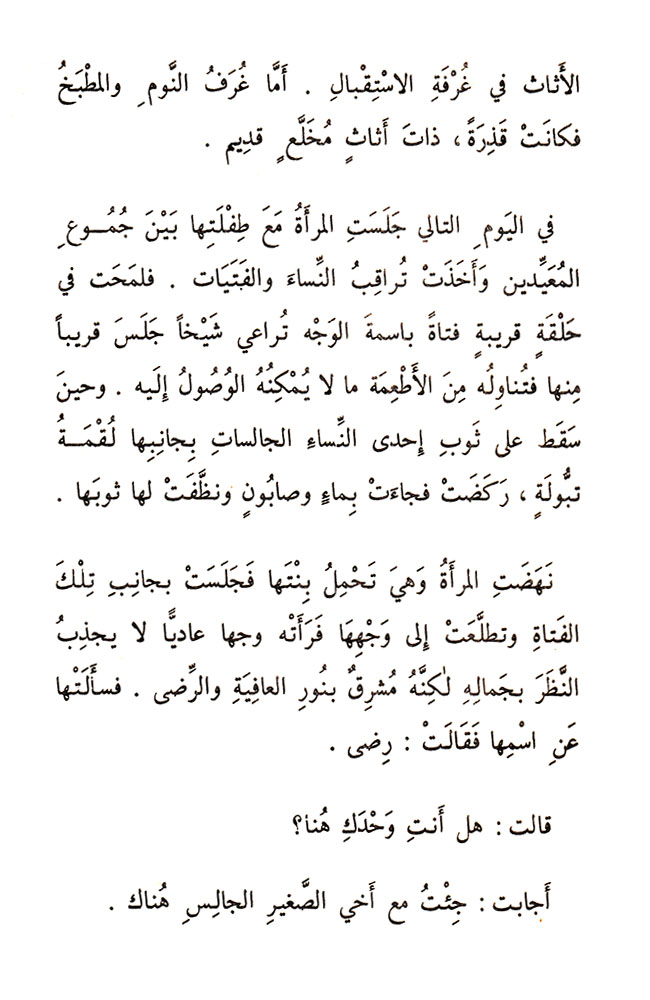 الأَثاث في غُرْفَةِ الاسْتِقْبالِ . أَمَّا غُرَفُ النَّومِ والمطْبَخُ
فكانَتْ قَذِرَةً ، ذاتَ أَثاثٍ مُخَلَّعٍ قديم .
في اليَومِ التالي جَلَسَتِ المرأَةُ مَعَ طِفْلَتِها بَيْنَ جُمُـوعِ
المُعَيِّدين وَأَخَذَتْ تُراقِبُ النِّساءَ والفَتَيَات . فلمَحَت في
حَلْقَةٍ قريبةٍ فتاةً باسمةَ الوَجْه تُراعي شَيْخاً جَلَسَ قريباً
مِنها فتُناوِلُه مِنَ الأَطْعِمَة ما لا يُمْكِنُهُ الوُصُولُ إِلَيه . وحينَ
سَقَط على ثَوبِ إِحدى النِّساءِ الجالساتِ بِجانِبِها لُقْمَـةُ
تبُّولَةٍ ، رَكَضَتْ فجاءَتْ بِماءٍ وصابُونٍ ونظَّفَتْ لها ثوبَها .
نَهَضَتِ المرأَةُ وَهيَ تَحْمِلُ بِنْتَها فَجَلَسَتْ بجانِبِ تِلْكَ
الفَتاةِ وتطلَّعَتْ إِلى وَجْهِهَا فَرَأَتْه وجها عاديًّا لا يجذِبُ
النَّظَرَ بجَمالِهِ لٰكِنَّهُ مُشرِقٌ بنُورِ العافِيَةِ والرِّضى . فسأَلَتْها
عَنِ اسْمِها فَقَالَتْ : رِضى .
قالت : هل أَنتِ وَحْدَكِ هُنا؟
أَجابت : جِئْتُ مع أَخي الصَّغيرِ الجالِسِ هُناك .